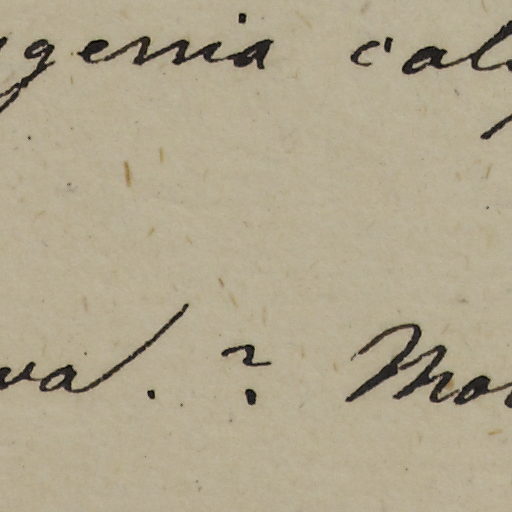 genia cal
va. ? Mo